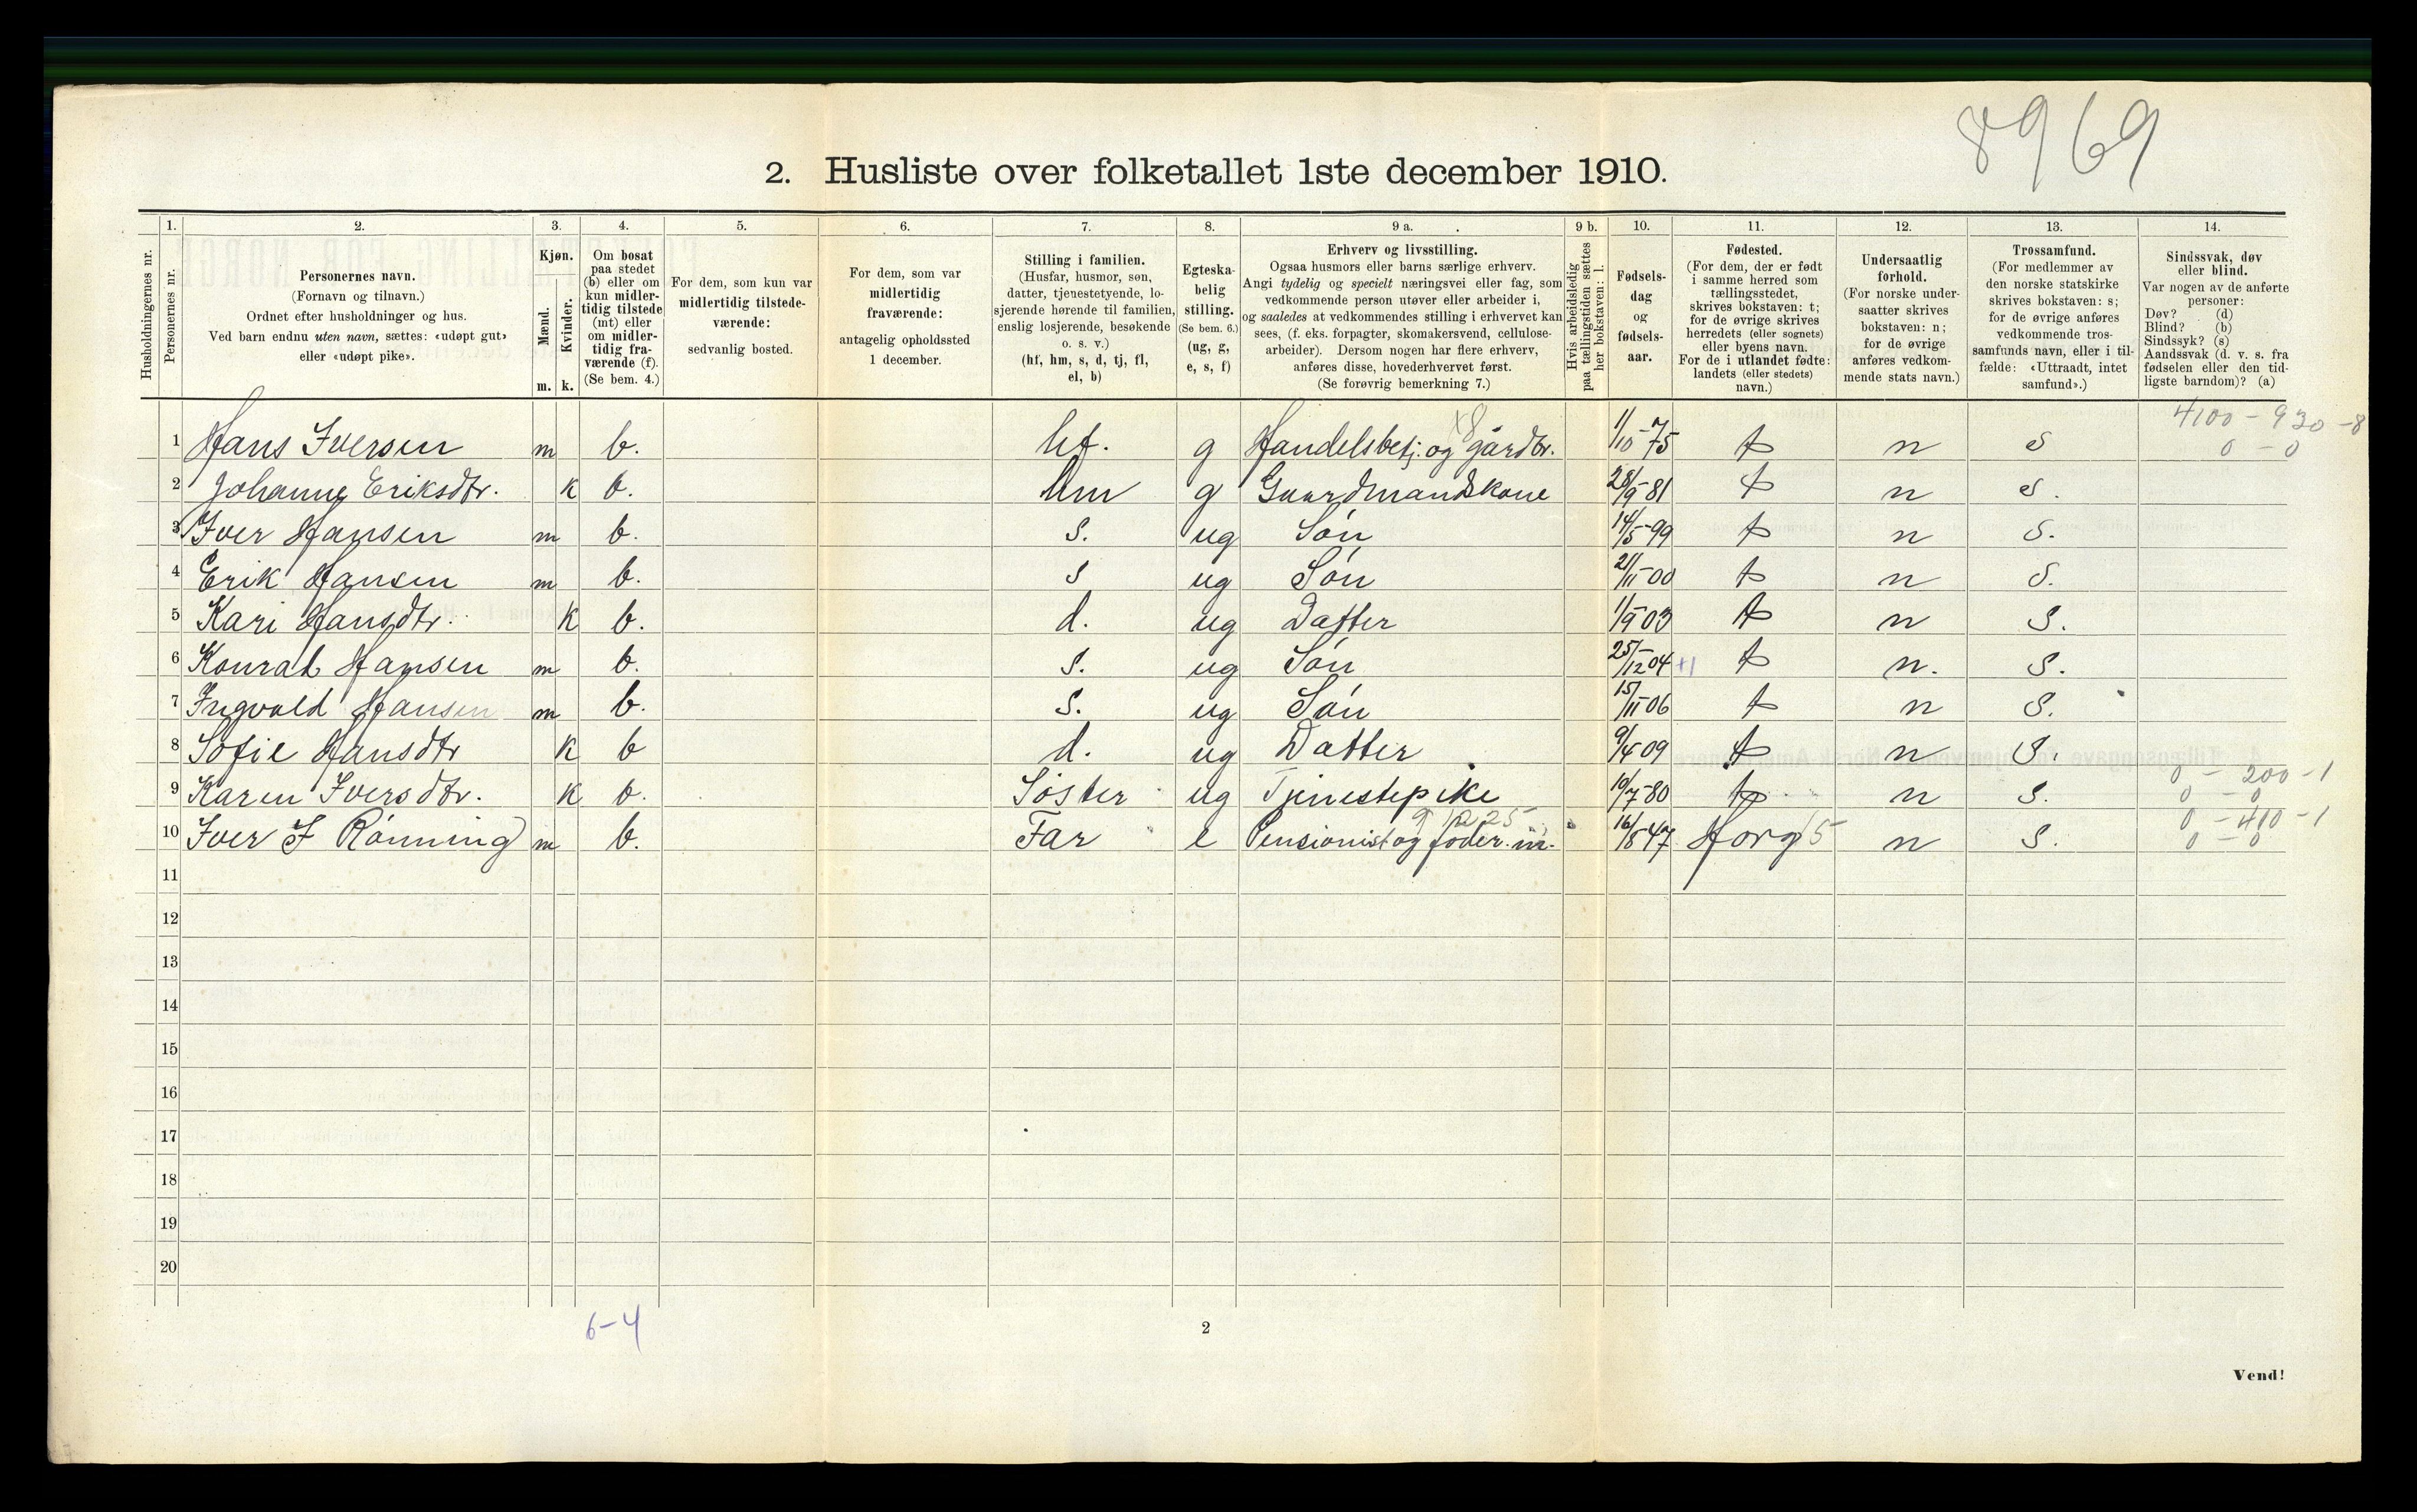 8969
2. Husliste over folketallet 1ste december 1910.
1. 2. 3. 4. 5. 6. 7. 8. 9 a. 9 b. 10. 11. 12. 13. 14.
Husholdningernes nr.
Personernes nr.
Personernes navn.
(Fornavn og tilnavn.)
Ordnet efter husholdninger og hus.
Ved barn endnu uten navn, sættes: «udøpt gut»
eller «udøpt pike».
Kjøn.
Mænd.
Kvinder.
m. k.
Om bosat
paa stedet
(b) eller om
kun midler-
tidig tilstede
(mt) eller
om midler-
tidig fra-
værende (f).
(Se bem. 4.)
For dem, som kun var
midlertidig tilstede-
værende:
sedvanlig bosted.
For dem, som var
midlertidig
fraværende:
antagelig opholdssted
1 december.
Stilling i familien.
(Husfar, husmor, søn,
datter, tjenestetyende, lo-
sjerende hørende til familien,
enslig losjerende, besøkende
o. s. v.)
(hf, hm, s, d, tj, fl,
el, b)
Egteska-
belig
stilling.
(Se bem. 6.)
(ug, g,
e, s, f)
Erhverv og livsstilling.
Ogsaa husmors eller barns særlige erhverv.
Angi tydelig og specielt næringsvei eller fag, som
vedkommende person utøver eller arbeider i,
og saaledes at vedkommendes stilling i erhvervet kan
sees, (f. eks. forpagter, skomakersvend, cellulose-
arbeider). Dersom nogen har flere erhverv,
anføres disse, hovederhvervet først.
(Se forøvrig bemerkning 7.)
Hvis arbeidsledig
paa tællingstiden sættes
her bokstaven: l.
Fødsels-
dag
og
fødsels-
aar.
Fødested.
(For dem, der er født
i samme herred som
tællingsstedet,
skrives bokstaven: t;
for de øvrige skrives
herredets (eller sognets)
eller byens navn.
For de i utlandet fødte:
landets (eller stedets)
navn.)
Undersaatlig
forhold.
(For norske under-
saatter skrives
bokstaven: n;
for de øvrige
anføres vedkom-
mende stats navn.)
Trossamfund.
(For medlemmer av
den norske statskirke
skrives bokstaven: s;
for de øvrige anføres
vedkommende tros-
samfunds navn, eller i til-
fælde: «Uttraadt, intet
samfund».)
Sindssvak, døv
eller blind.
Var nogen av de anførte
personer:
Døv? (d)
Blind? (b)
Sindssyk? (s)
Aandssvak (d. v. s. fra
fødselen eller den tid-
ligste barndom)? (a)
4100 - 930 - 8
1 Hans Iversen m b. hf. g Handelsbetj. og gårdbr. 1/10-75 t n s 0 - 0
2 Johanne Eriksdtr. k b. hm g Gaardmandskone 28/9-81 t n s.
3 Iver Hansen m b. s. ug Søn 14/5-99 t n s.
4 Erik Hansen m b. s ug Søn 21/11-00 t n s.
5 Kari Hansdtr. k b. d. ug Datter 1/9 03 t n s.
6 Konrad Hansen m b. s. ug Søn 25/12 04 +1 t n. s.
7 Ingvald Hansen m b. s. ug Søn 15/11-06 t n s.
8 Sofie Hansdtr k b d. ug Datter 9/4 09 t n s.
0 - 200 - 1
9 Karen Iversdtr. k b. Søster ug Tjenestepike 19/7-80 t n s. 0 - 0
0 - 410 - 1
10 Iver I Rønning m b. Far e Pensionist og føder.m. 16/8 47 Horg 15 n s. 0 - 0
11
12
13
14
15
16
17
18
19
20
6-4
2
Vend!